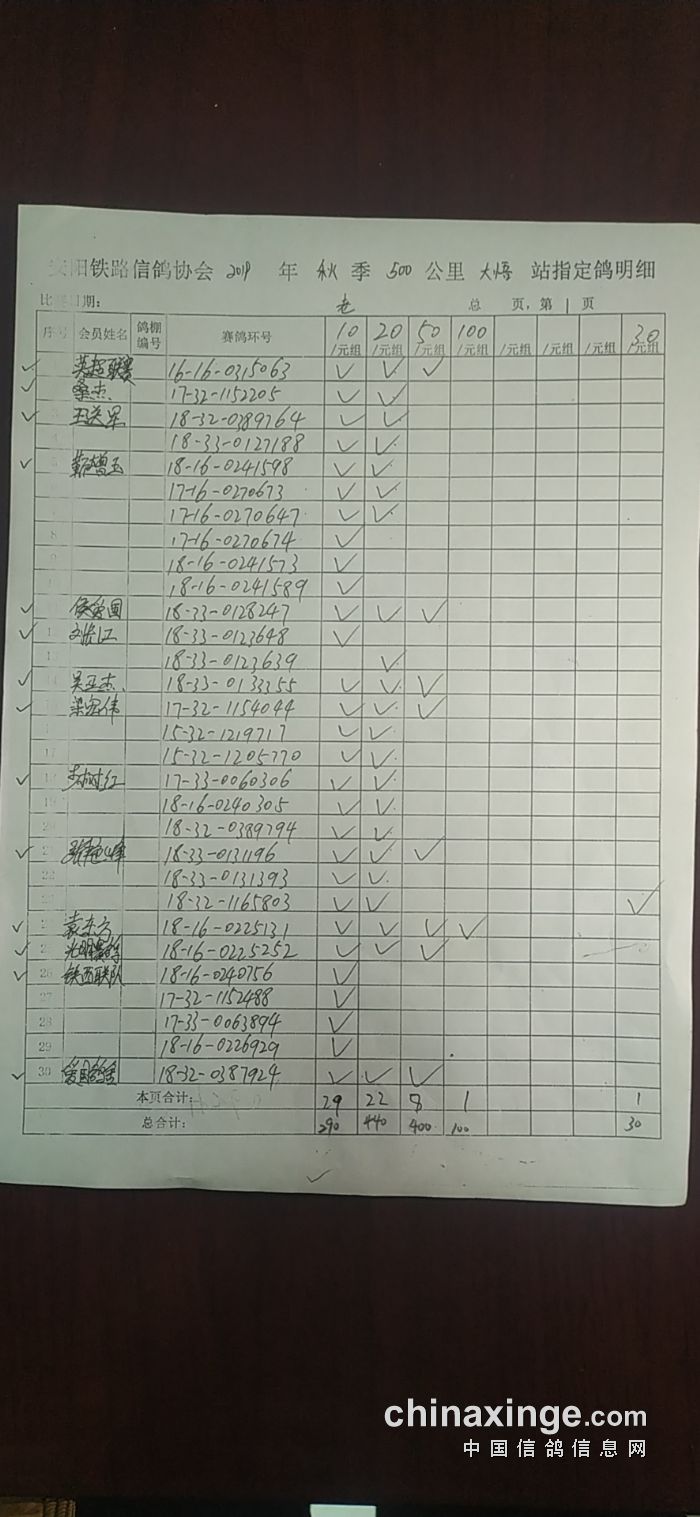 阳铁路信鸽协会 2019 年 秋 季 500 公里 大悟 站指定鸽明细
比 日期： 老 总 页，第 1 页
序号 会员姓名 鸽棚编号 赛鸽环号 10/元组 20/元组 50/元组 100/元组 /元组 /元组 /元组 30/元组
✓ 英超联赛 16-16-0315063 ✓ ✓ ✓
✓ 秦杰 17-32-1152205 ✓ ✓
✓ 18-32-0389764 ✓ ✓
18-33-0127188 ✓ ✓
✓ 靳增玉 18-16-0241598 ✓ ✓
17-16-0270673 ✓ ✓
17-16-0270647 ✓ ✓
8 17-16-0270674 ✓
9 18-16-0241573 ✓
18-16-0241589 ✓
✓ 18-33-0128247 ✓ ✓ ✓
✓ 18-33-0123648 ✓
13 18-33-0123639 ✓
✓ 14 吴亚杰 18-33-0133355 ✓ ✓ ✓
✓ 梁宏伟 17-32-1154044 ✓ ✓ ✓
15-32-1219717 ✓ ✓
17 15-32-1205770 ✓ ✓
✓ 李树红 17-33-0060306 ✓ ✓
19 18-16-0240305 ✓ ✓
20 18-32-0389794 ✓ ✓
✓ 21 张艳峰 18-33-0131196 ✓ ✓ ✓
22 18-33-0131393 ✓ ✓
18-32-1165803 ✓ ✓ ✓
✓ 袁东方 18-16-0225131 ✓ ✓ ✓ ✓
✓ 18-16-0225252 ✓ ✓ ✓
✓ 26 铁西联队 18-16-0240756 ✓
27 17-32-1152488 ✓
28 17-33-0063894 ✓
29 18-16-0226929 ✓
✓ 30 18-32-0387924 ✓ ✓ ✓
本页合计： 29 22 8 1 1
总合计： 290 440 400 100 30
✓
chinaxinge.com
中国信鸽信息网